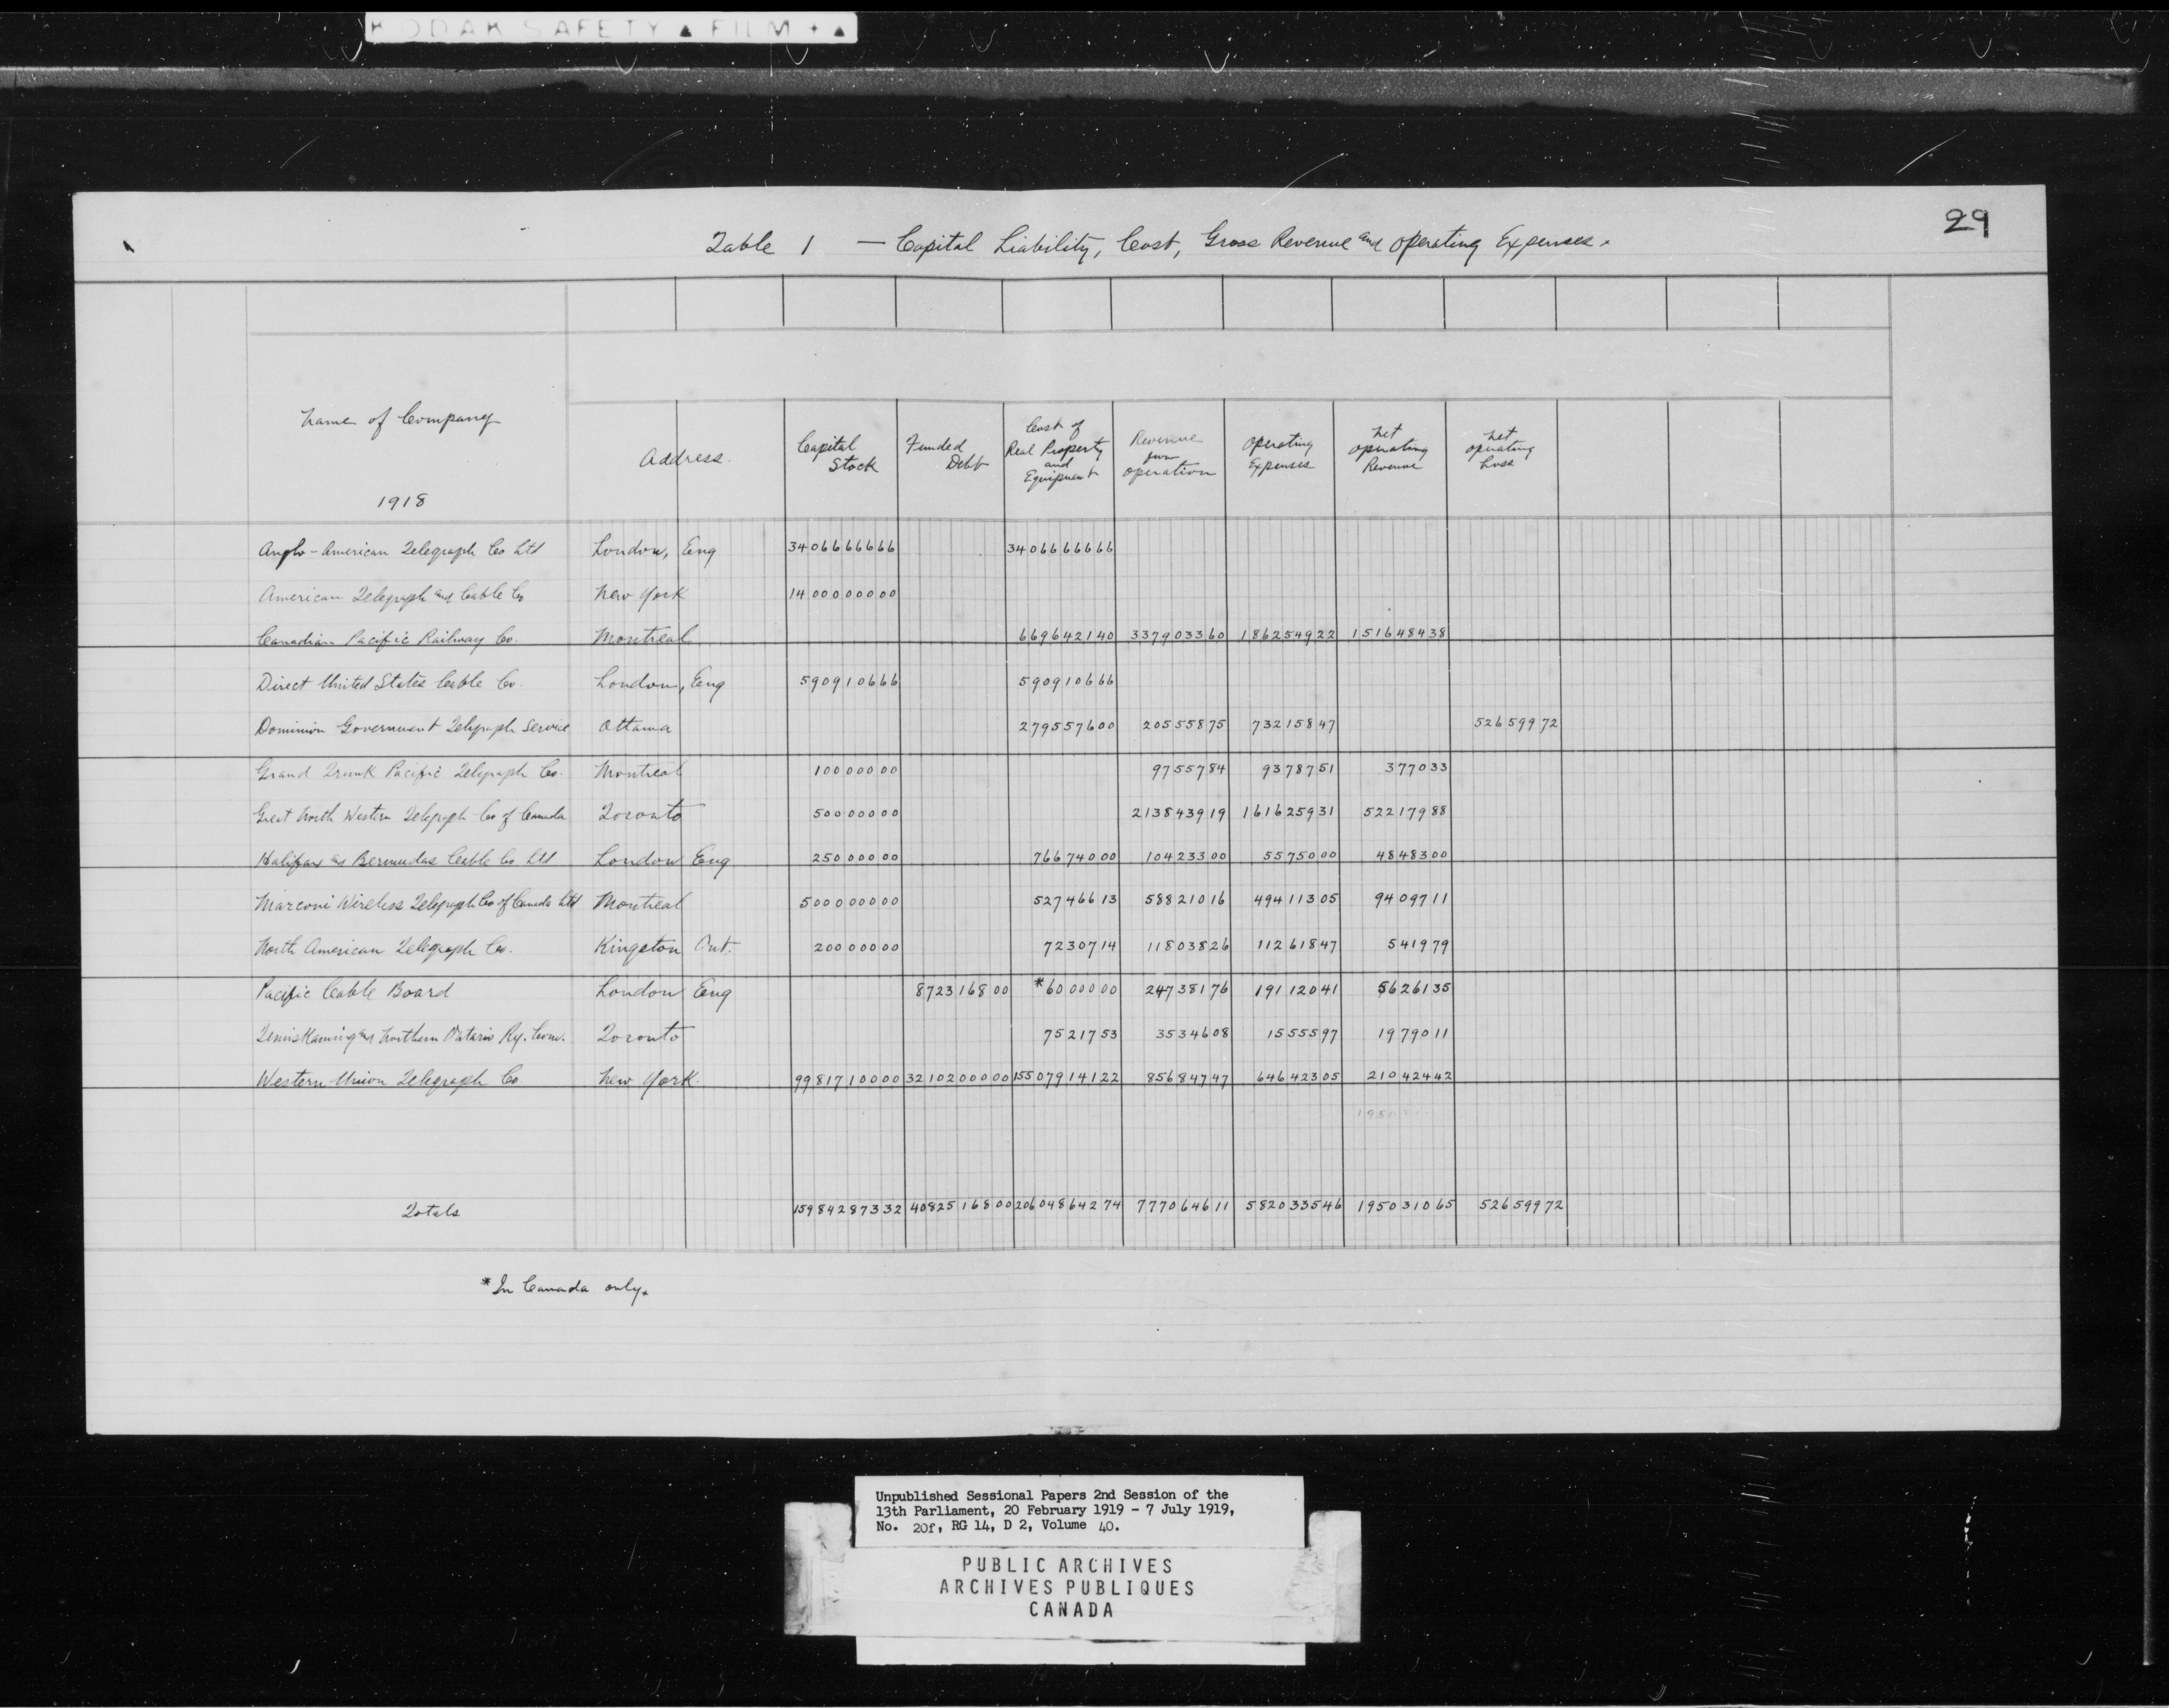 KODAK SAFETY ▲ FILM + ▲
29
Table 1 — Capital Liability, Cost, Gross Revenue and Operating Expenses.
Name of Company 1918 Address. Capital Stock Funded Debt Cost of Real Property and Equipment Revenue from operation Operating Expenses Net operating Revenue Net operating Loss
Anglo-American Telegraph Co Ltd London, Eng 3406666666 3406666666
American Telegraph and Cable Co New York 1400000000
Canadian Pacific Railway Co. Montreal 669642140 337903360 186254922 151648438
Direct United States Cable Co. London, Eng 590910666 590910666
Dominion Government Telegraph Service Ottawa 279557600 20555875 73215847 52659972
Grand Trunk Pacific Telegraph Co. Montreal 10000000 9755784 9378751 377033
Great North Western Telegraph Co of Canada Toronto 50000000 213843919 161625931 52217988
Halifax and Bermudas Cable Co Ltd London Eng 25000000 76674000 10423300 5575000 4848300
Marconi Wireless Telegraph Co of Canada Ltd Montreal 500000000 52746613 58821016 49411305 9409711
North American Telegraph Co. Kingston Ont. 20000000 7230714 11803826 11261847 541979
Pacific Cable Board London Eng 872316800 *6000000 24738176 19112041 5626135
Temiskaming and Northern Ontario Ry. Com. Toronto 7521753 3534608 1555597 1979011
Western Union Telegraph Co New York. 9981710000 3210200000 15507914122 85684747 64642305 21042442
Totals 15984287332 4082516800 20604864274 777064611 582033546 195031065 52659972
* In Canada only.
Unpublished Sessional Papers 2nd Session of the
13th Parliament, 20 February 1919 - 7 July 1919,
No. 20f, RG 14, D 2, Volume 40.
PUBLIC ARCHIVES
ARCHIVES PUBLIQUES
CANADA